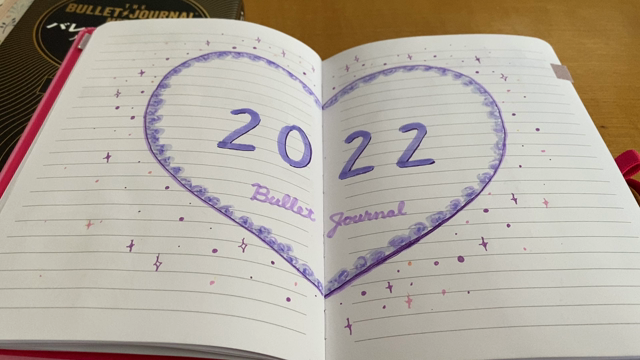 THE
BULLET JOURNAL
バレ
2022
Bullet Journal